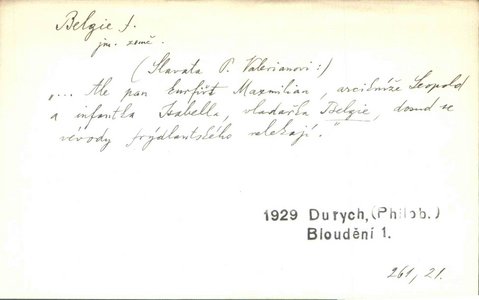 Belgie f.
jm. země.
(Slavata P. Valerianovi:)
„... Ale pan kurfiřt Maxmilian, arcikníže Leopold
a infantka Isabella, vladařka Belgie, dosud se
vévody frýdlantského lekají."
1929 Durych, (Philob.)
Bloudění 1.
261, 21.